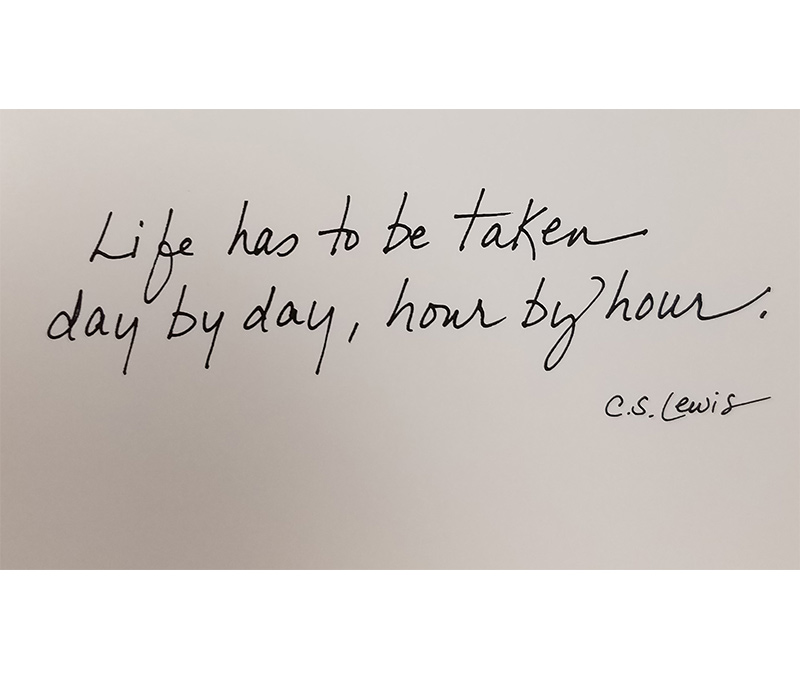 Life has to be taken
day by day, hour by hour.
C.S. Lewis